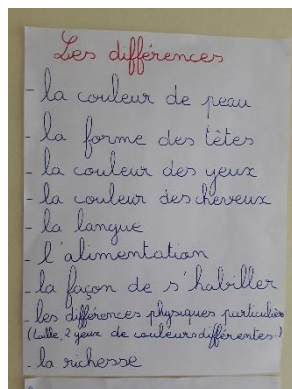 Les différences
- la couleur de peau
- la forme des têtes
- la couleur des yeux
- la couleur des cheveux
- la langue
- l'alimentation
- la façon de s'habiller
- les différences physiques particulières
(taille, 2 yeux de couleurs différentes.)
- la richesse